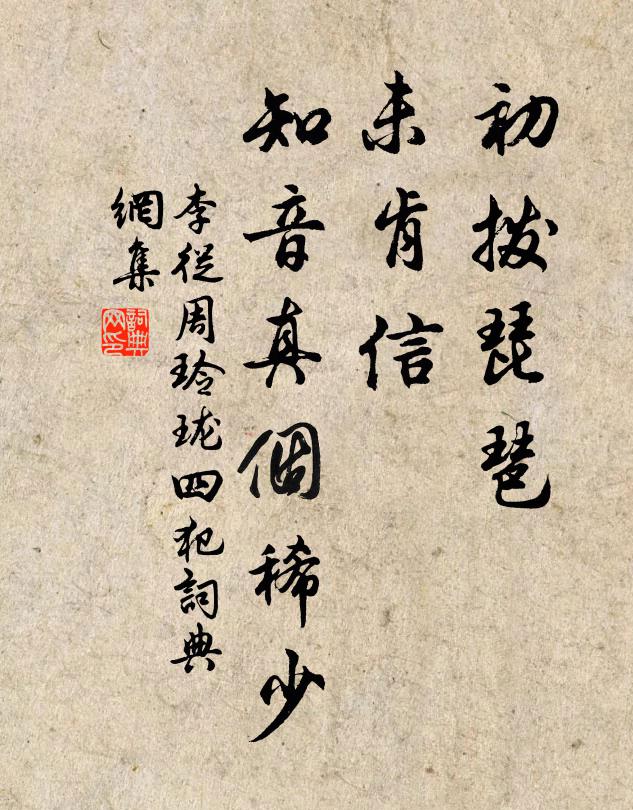 初拨琵琶
未肯信
知音真個稀少
李從周玲珑四犯詞典
網集
詞典
网印